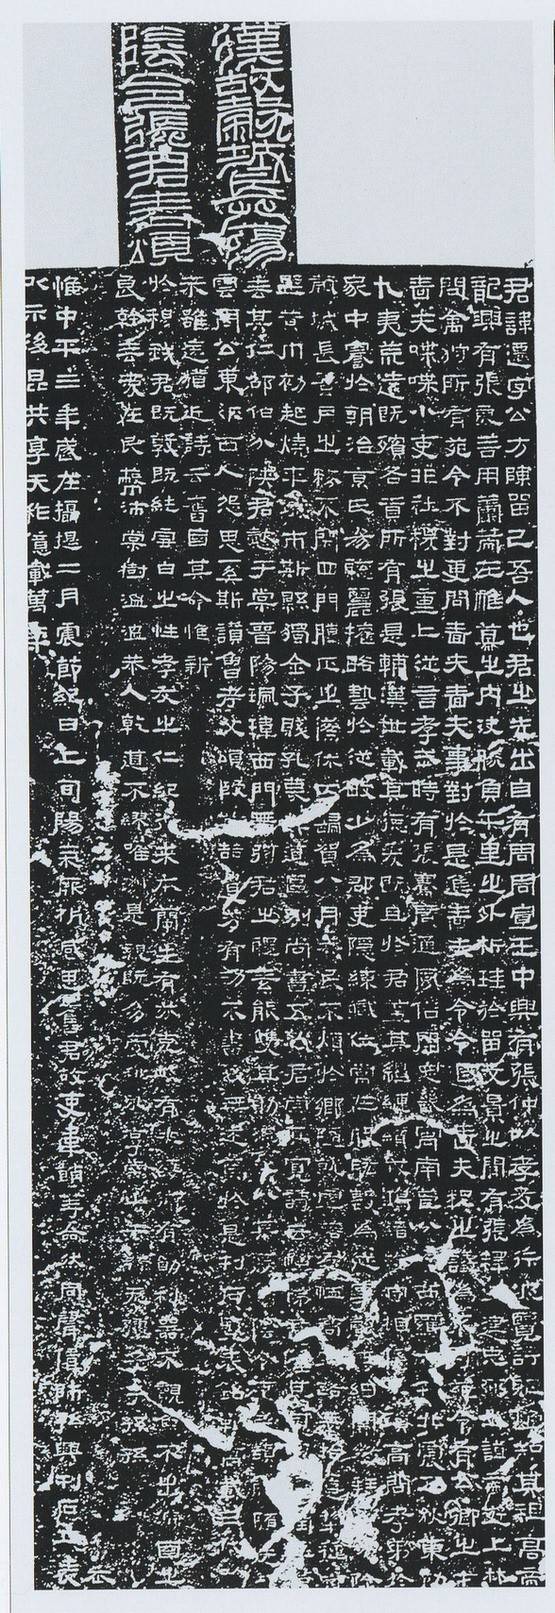 漢故穀城長蕩
陰令張君表頌
君諱遷字公方陳留己吾人也君之先出自有周周宣王中興有張仲以孝友為行披覽詩雅煥知其祖高帝
龍興有張良善用籌策在帷幕之內決勝負千里之外析珪於留文景之間有張釋之建忠弼之謨帝遊上林
問禽狩所有苑令不對更問嗇夫嗇夫事對於是進嗇夫為令令退為嗇夫釋之議為不可苑令有公卿之才
嗇夫喋喋小吏非社稷之重上從言孝武時有張騫廣通風俗開定畿寓南苞八蠻西羈六戎北震五狄東勤
九夷荒遠既殯各貢所有張是輔漢世載其德爰既且於君蓋其繵縺纘戎鴻緒牧守相係不殞高問孝弟於
家中謇於朝治京氏易聰麗權略藝於從畋少為郡吏隱練職位常在股肱數為從事聲無細聞徵拜郎中除
穀城長蠶月之務不閉四門臘正之祭休囚歸賀八月筭民不煩於鄉隨就虛落存恤高年路無拾遺犁種宿
野黃巾初起燒平城市斯縣獨全子賤孔蔑其道區別尚書五教君崇其寬詩云愷悌君隆其恩東里潤色君
垂其仁邵伯分陝君懿于棠晉陽珮瑋西門帶弦君之體素能雙其勛流化八基遷蕩陰令吏民頡頏隨送如
雲周公東征西人怨思奚斯讚魯考父頌殷前喆遺芳有功不書後無述焉於是刊石豎表銘勒萬載三代以
來雖遠猶近詩云舊國其命惟新
於穆我君既敦既純雪白之性孝友之仁紀行來本蘭生有芬克岐有兆綏御有勳利器不覿魚不出淵國之
良幹垂愛在民蔽沛棠樹溫溫恭人乾道不繆唯淑是親既多受祉永享南山干祿無疆子子孫孫
惟中平三年歲在攝提二月震節紀日上旬陽氣厥析感思舊君故吏韋萌等僉然同聲賃師孫興刊石立表
以示後昆共享天祚億載萬年